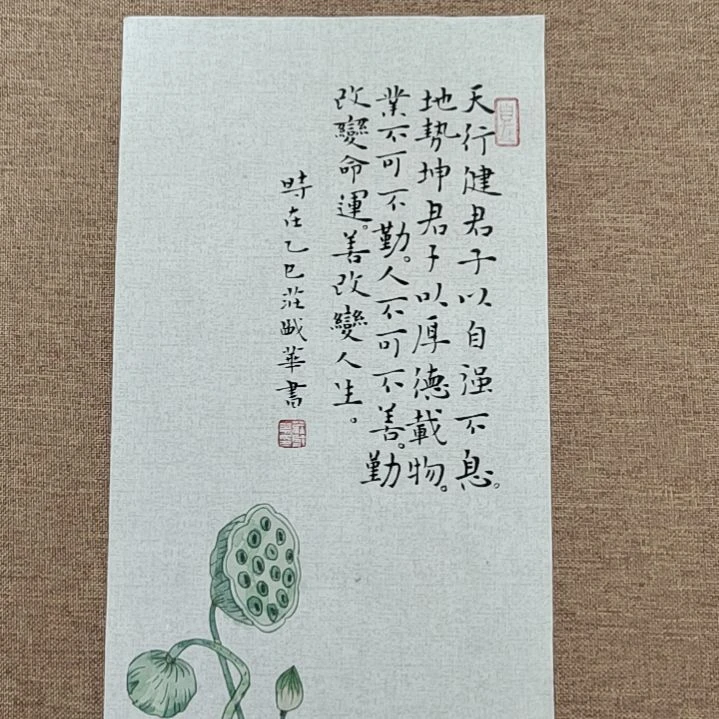 天行健君子以自强不息。
地势坤君子以厚德載物。
業不可不勤。人不可不善。勤
改變命運。善改變人生。
時在乙巳莊戝華書